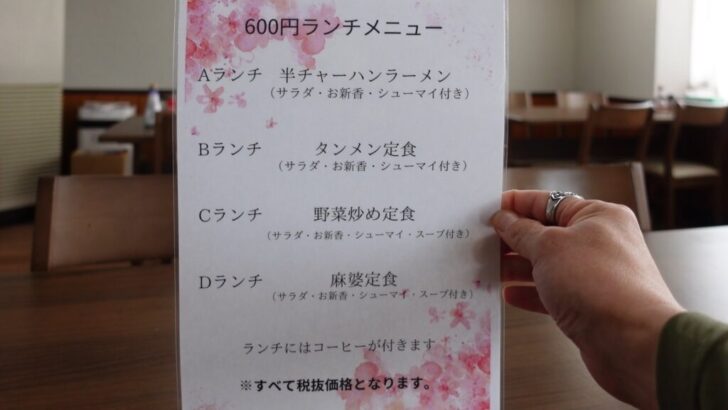 600円ランチメニュー
Aランチ 半チャーハンラーメン
（サラダ・お新香・シューマイ付き）
Bランチ タンメン定食
（サラダ・お新香・シューマイ付き）
Cランチ 野菜炒め定食
（サラダ・お新香・シューマイ・スープ付き）
Dランチ 麻婆定食
（サラダ・お新香・シューマイ・スープ付き）
ランチにはコーヒーが付きます
※すべて税抜価格となります。